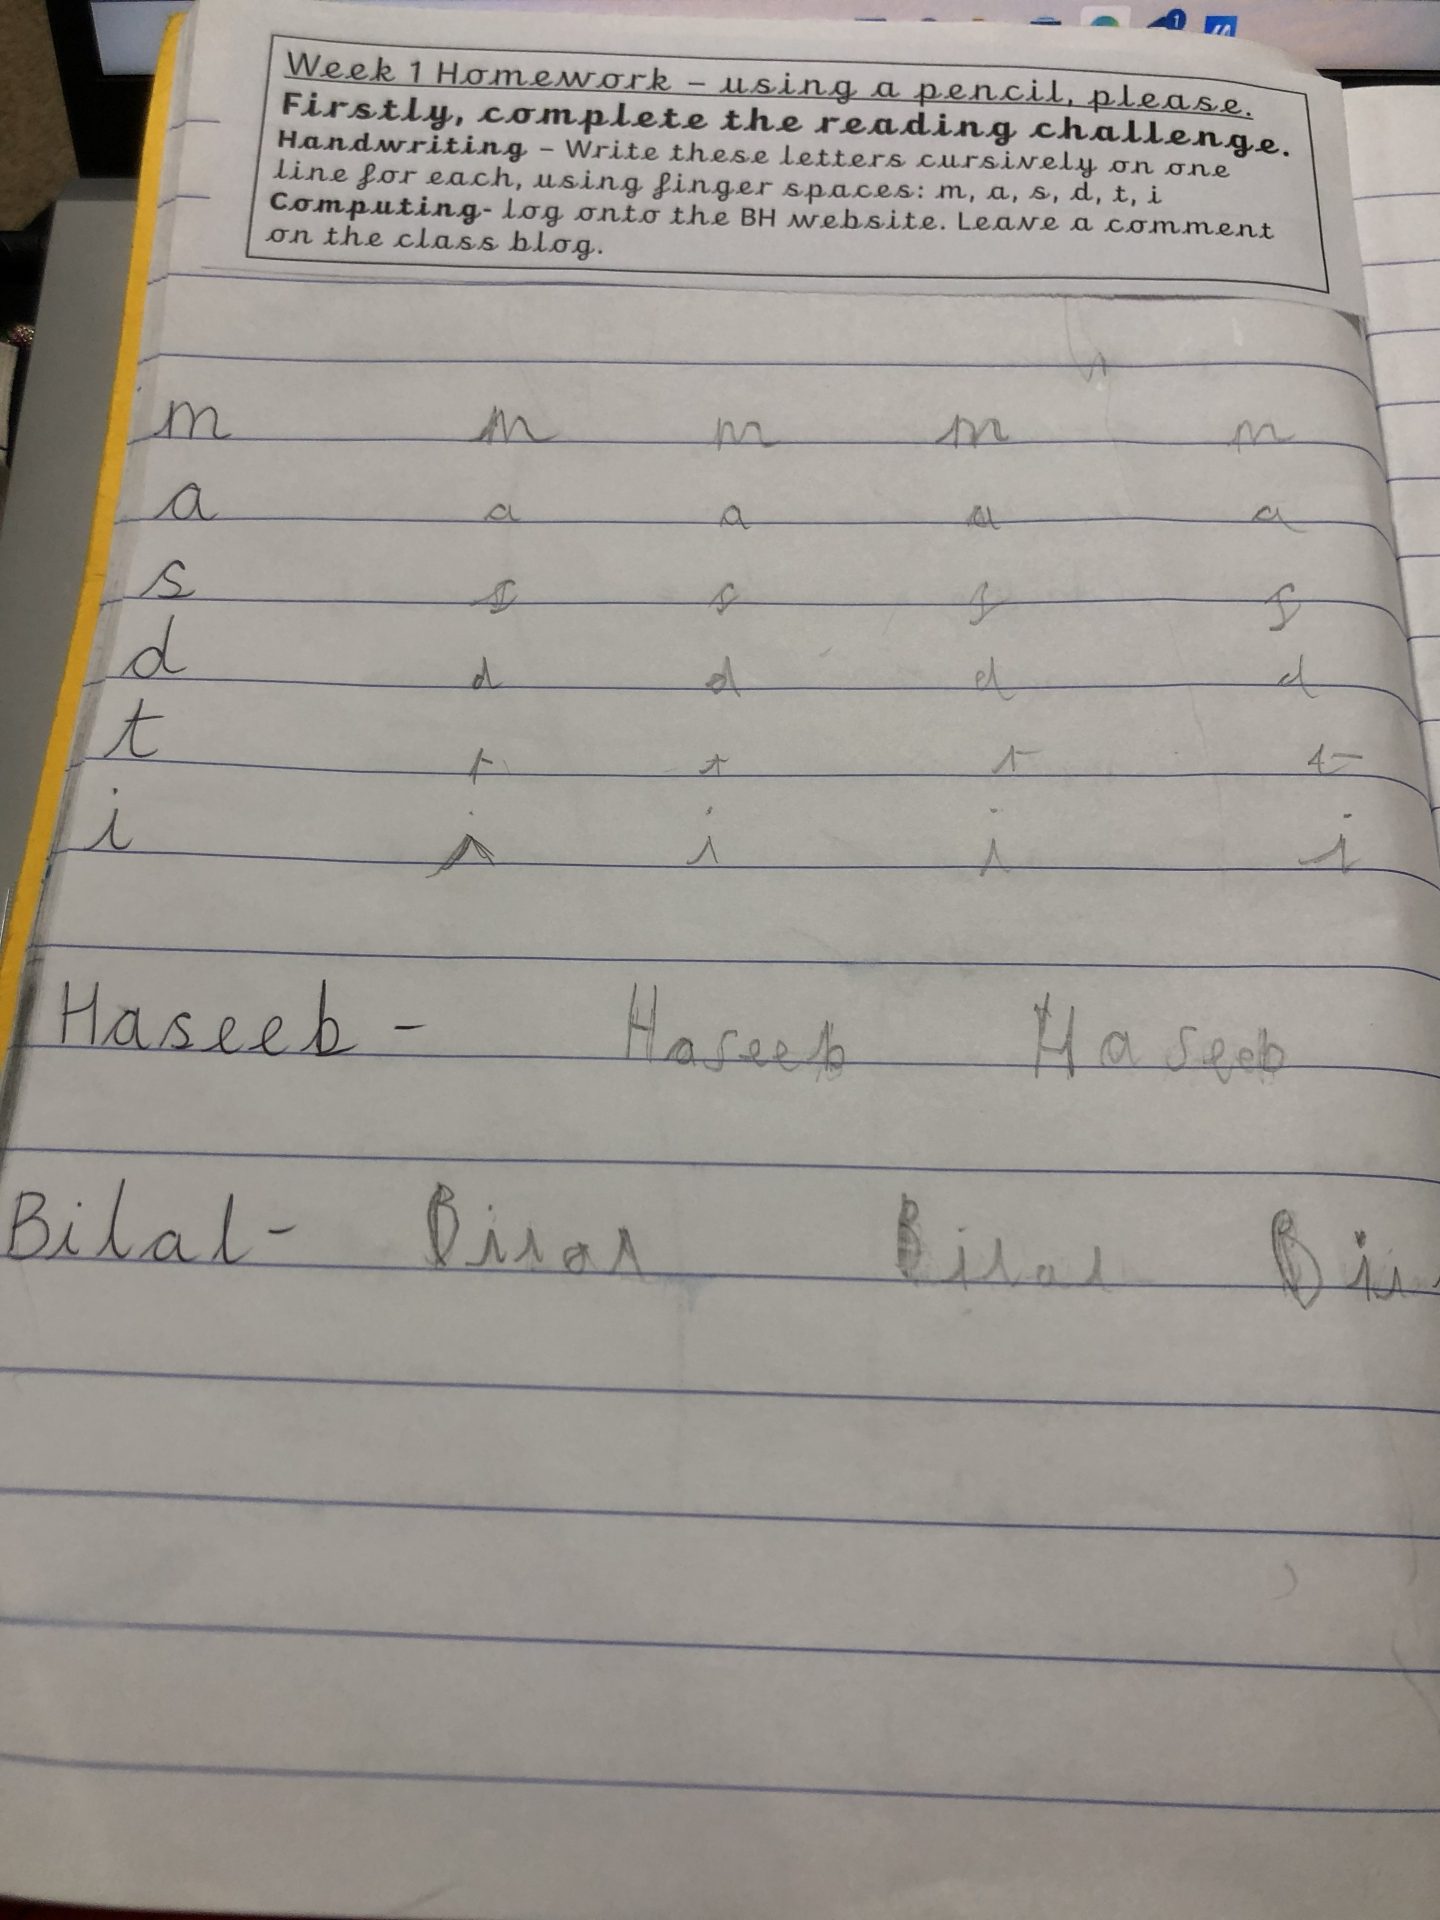 Week 1 Homework – using a pencil, please.
Firstly, complete the reading challenge.
Handwriting – Write these letters cursively on one
line for each, using finger spaces: m, a, s, d, t, i
Computing- Log onto the BH website. Leave a comment
on the class blog.
m m m m m
a a a a a
s s s s s
d d d d d
t t t t t
i i i i i
Haseeb - Haseeb Haseeb
Bilal - Bilal Bilal